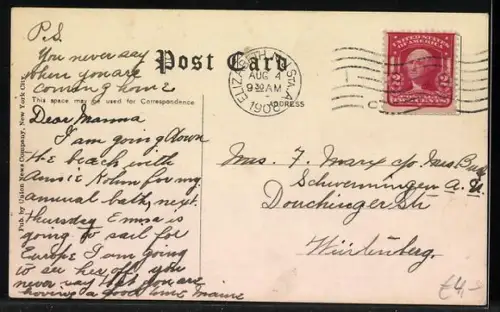 P.S.
You never say
when you are
coming home
Post Card
This space may be used for Correspondence
ADDRESS
Dear Mamma
I am going down
the beach with
Annie Kohm for my
annual bath, next
thursday Emma is
going to sail for
Europe I am going
to see her off you
never say that you are
having a good time,
Pub. by Union News Company, New York City.
ELIZABETH STA.
AUG 4
9 AM
UNITED STATES
OF AMERICA
2 2
TWO CENTS
Mrs. F. Marx c/o Mrs
Schwenningen a. N
Württenberg.
€4,-